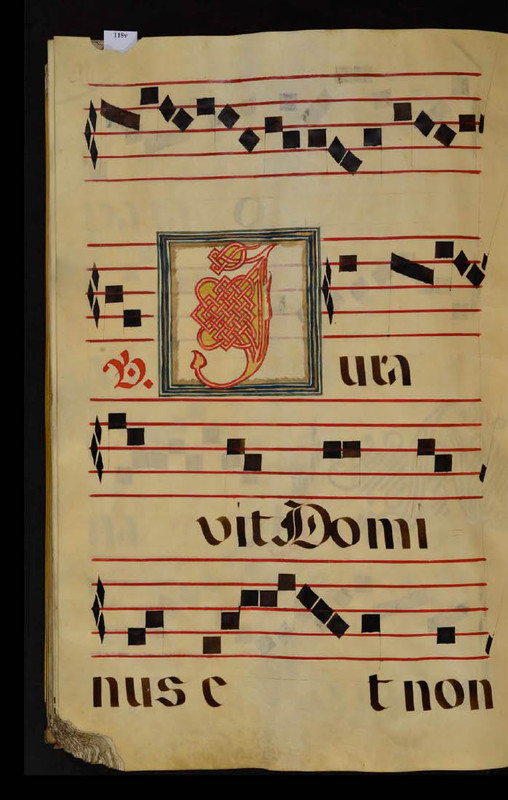 118v
V. Jura
vit Domi
nus e t non